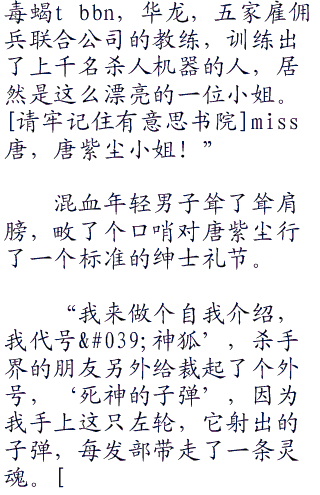 毒蝎t bbn，华龙，五家雇佣
兵联合公司的教练，训练出
了上千名杀人机器的人，居
然是这么漂亮的一位小姐。
[请牢记住有意思书院]miss
唐，唐紫尘小姐！”
混血年轻男子耸了耸肩
膀，畋了个口哨对唐紫尘行
了一个标准的绅士礼节。
“我来做个自我介绍，
我代号&#039;神狐’，杀手
界的朋友另外给裁起了个外
号，‘死神的子弹’，因为
我手上这只左轮，它射出的
子弹，每发部带走了一条灵
魂。[